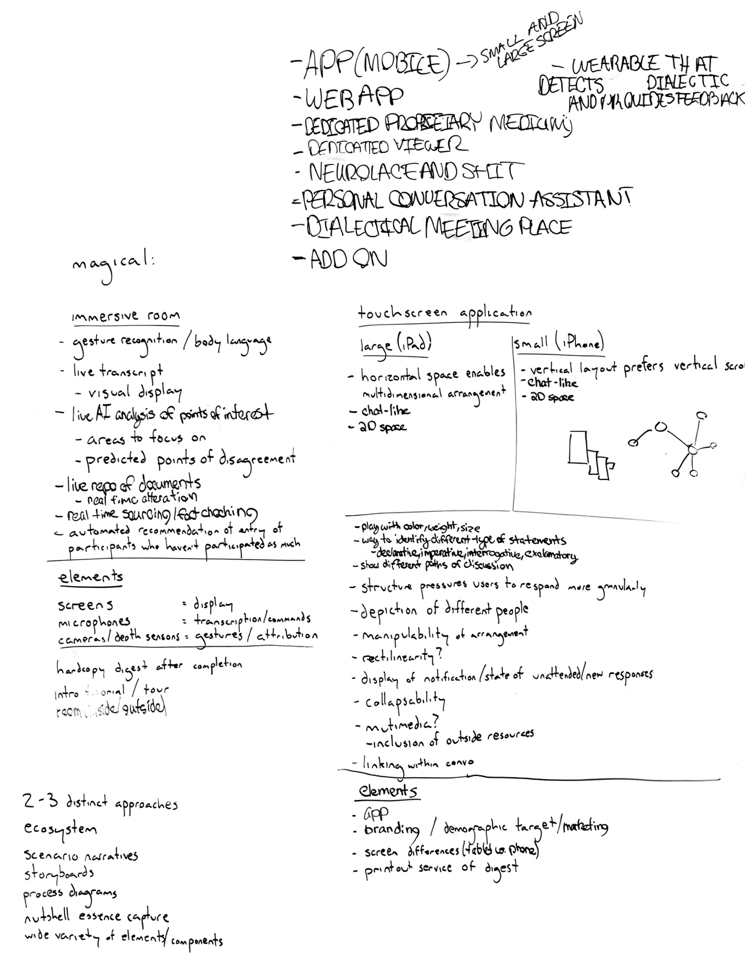 - APP (MOBILE) → SMALL AND LARGE SCREEN
- WEB APP
- DEDICATED PROPRIETARY MEDIUM
- DEDICATED VIEWER
- NEUROLACE AND SHIT
- PERSONAL CONVERSATION ASSISTANT
- DIALECTICAL MEETING PLACE
- ADD ON
- WEARABLE THAT
DETECTS DIALECTIC
AND GUIDES FEEDBACK
magical:
immersive room
- gesture recognition / body language
- live transcript
- visual display
- live AI analysis of points of interest
- areas to focus on
- predicted points of disagreement
- live repo of documents
- real time alteration
- real time sourcing / fact checking
- automated recommendation of entry of
participants who haven't participated as much
elements
screens = display
microphones = transcription/commands
cameras/depth sensors = gestures / attribution
hardcopy digest after completion
intro tutorial / tour
room (inside/outside)
2-3 distinct approaches
ecosystem
scenario narratives
storyboards
process diagrams
nutshell essence capture
wide variety of elements/components
touchscreen application
large (iPad)
- horizontal space enables
multidimensional arrangement
- chat-like
- 2D space
small (iPhone)
- vertical layout prefers vertical scro
- chat-like
- 2D space
- play with color, weight, size
- way to identify different type of statements
- declarative, imperative, interrogative, exclamatory
- show different paths of discussion
- structure pressures users to respond more granularly
- depiction of different people
- manipulability of arrangement
- rectilinearity?
- display of notification/state of unattended/new responses
- collapsability
- mutimedia?
- inclusion of outside resources
- linking within convo
elements
- app
- branding / demographic target/marketing
- screen differences (tablet vs. phone)
- printout service of digest